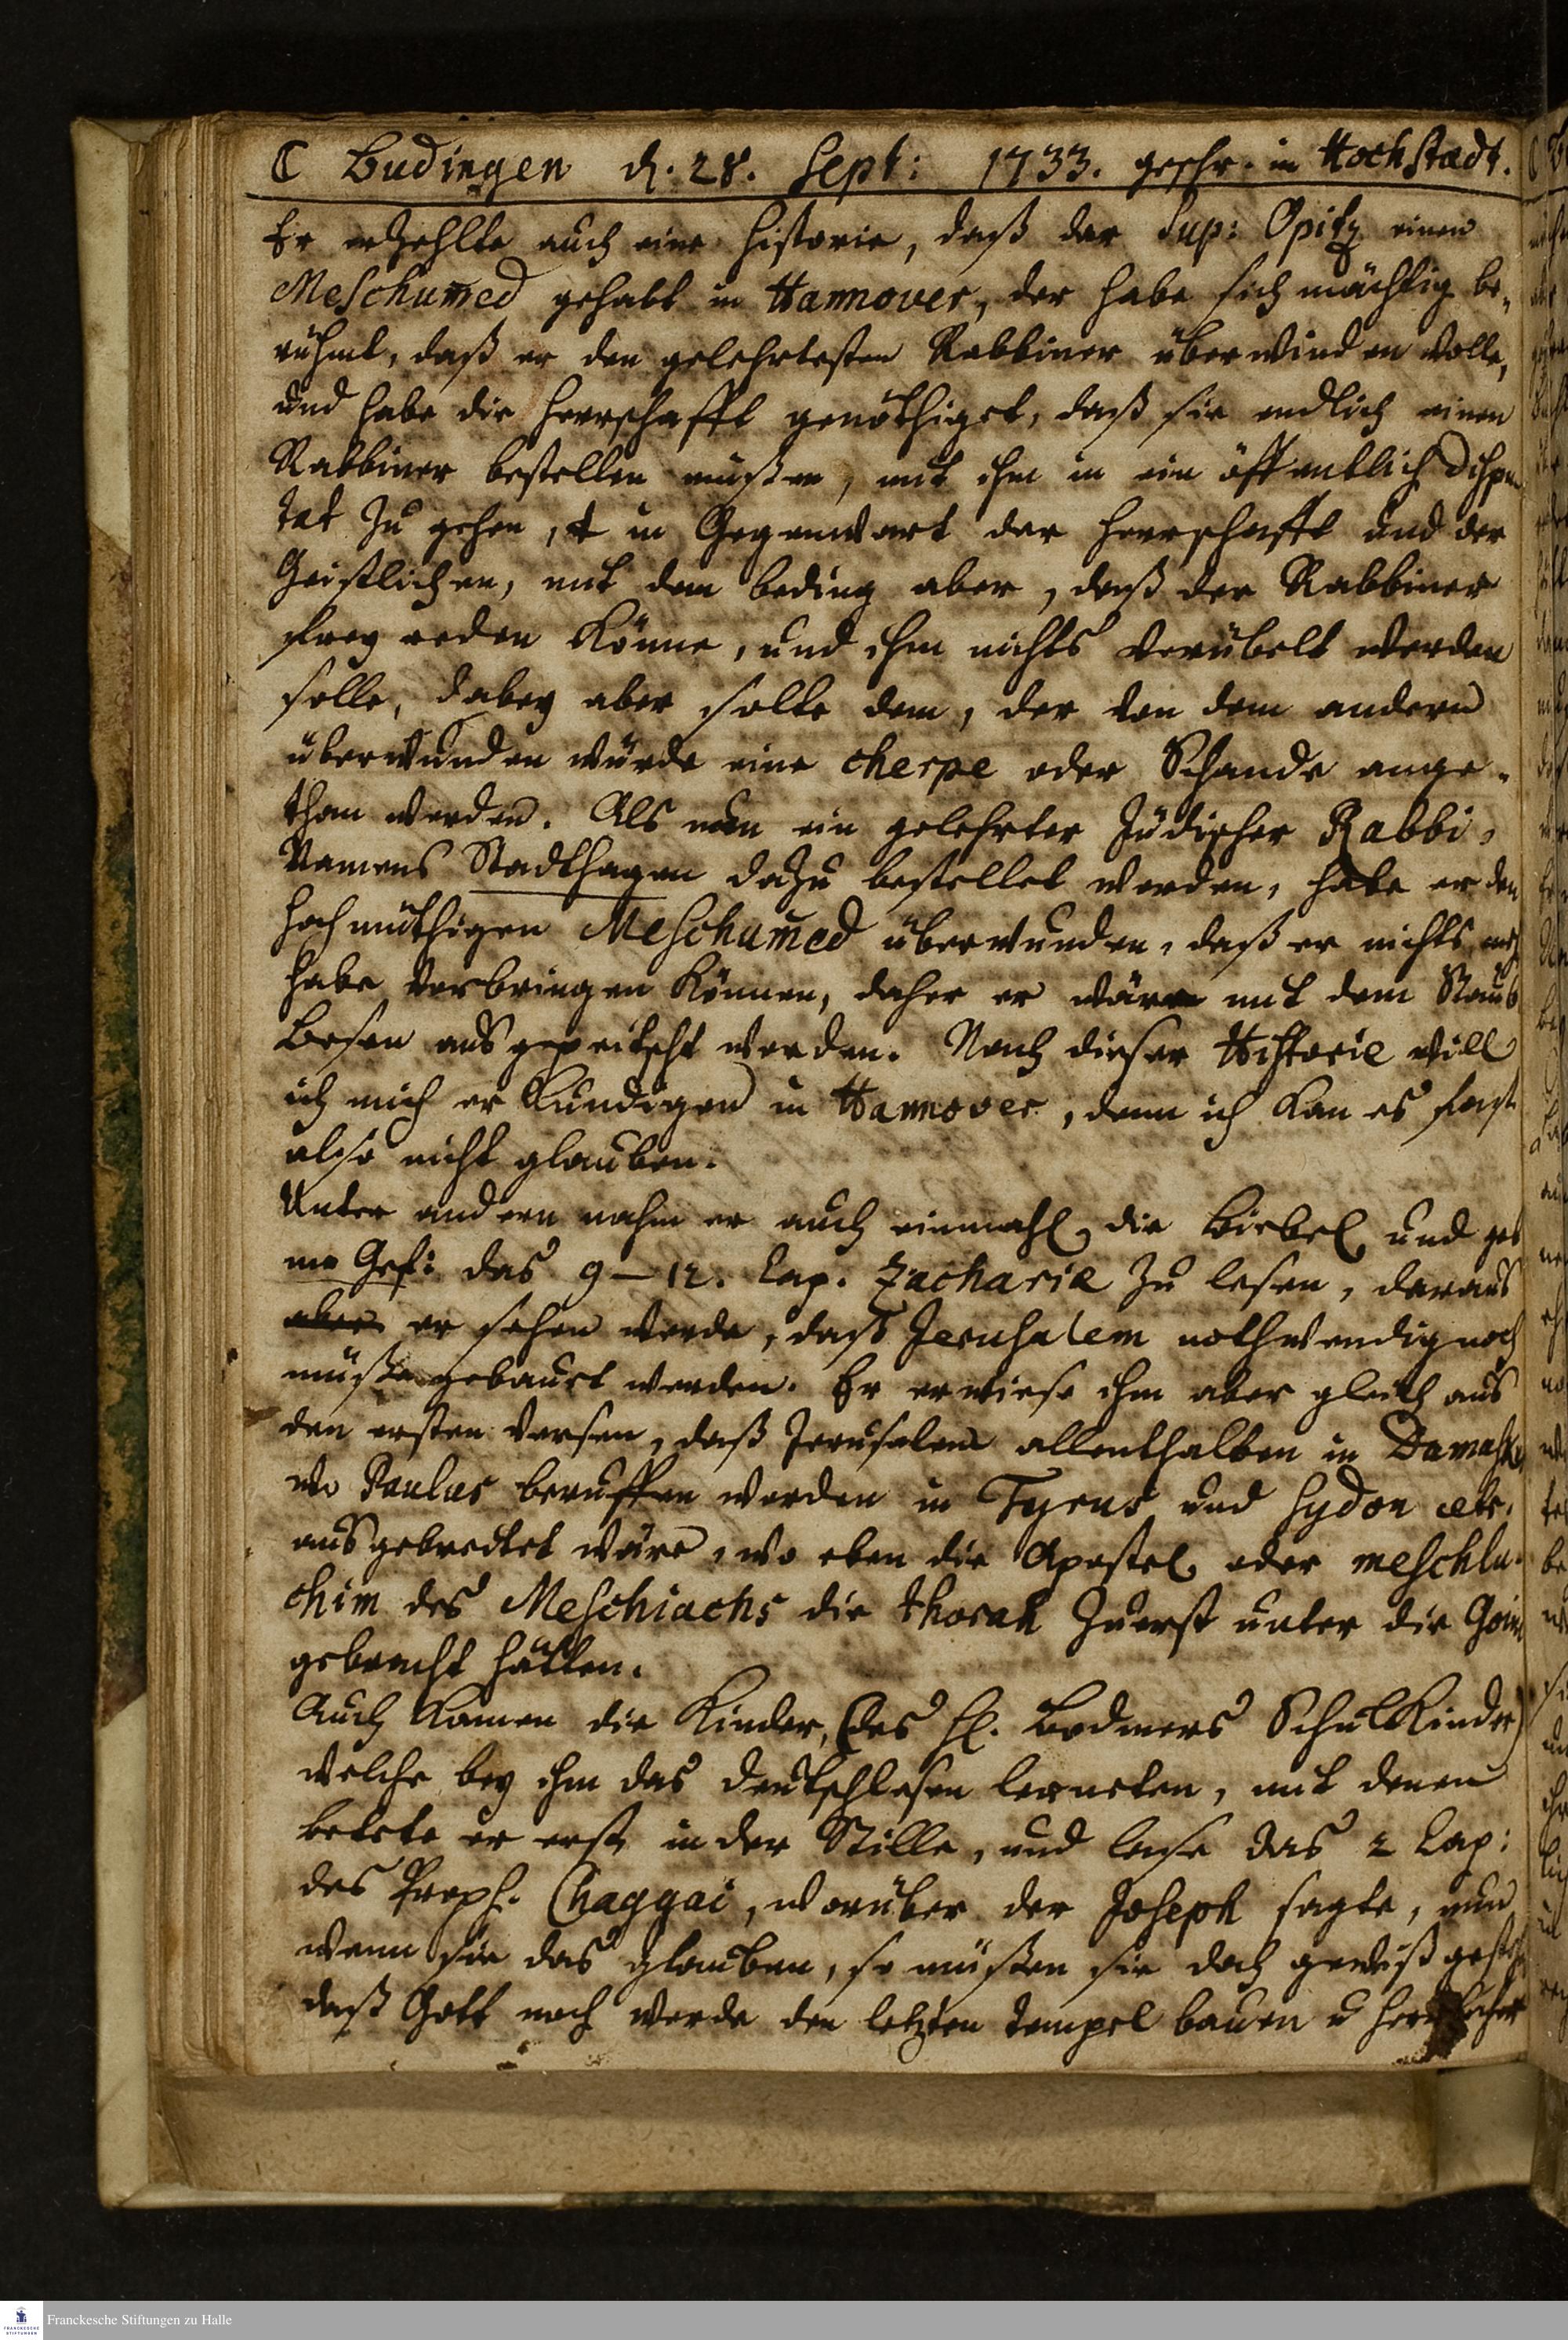 ☾ Budingen d. 28. Sept: 1733. geschr. in Hochstadt.
Er erzehlte auch eine Historie, daß der Sup: Opitz einen
Meschumed gehabt in Hannover, der habe sich mächtig be-
rühmt, daß er den gelehrtesten Rabbiner überwinden wolle,
und habe die Herrschafft genöthiget, daß sie endlich einen
Rabbiner bestellen mußen, mit ihm in ein öffentlich Dispu
tat zu gehen, in Gegenwart der Herrschafft und der
Geistlichen, mit dem beding aber, daß der Rabbiner
frey reden könne, und ihm nichts verübelt werden
solle, dabey aber solte dem, der von dem andern
überwunden würde eine cherpe oder Schande ange-
than werden. Als nun ein gelehrter Jüdischer Rabbi,
Namens Stadthagen dazu bestellet worden, habe er den
hochmüthigen Meschumed überwunden, daß er nichts
habe vorbringen können, daher er wäre mit dem Staub
Besen ausgepeitscht worden. Nach dieser Historie will
ich mich erkundigen in Hannover, denn ich kan es fast
also nicht glauben.
Unter andern nahm er auch einmahl die Biebel und gab
das 9–12. Cap. Zachariæ zu lesen, daraus
aber er sehen werde, daß Jerusalem nothwendig noch
müße gebauet werden. Er erwiese ihm aber gleich aus
den ersten Versen, daß Jerusalem allenthalben in Damasko
wo Paulus beruffen worden in Tyrus und Sydon etc.
ausgebreitet wäre, wo eben die Apostel oder meschlu-
chim des Meschiachs die thorah zuerst unter die Goim
gebracht hätten.
Auch kamen die Kinder, (des H. Bodmers Schulkinder)
welche bey ihm das deutschlesen lerneten, mit denen
betete er erst in der Stille, und lase das 2 Cap:
des Proph. Chaggai, worüber der Joseph sagte, nun
wenn sie das glauben, so müßten sie doch gewiß
daß Gott noch werde den letzten Tempel bauen u herrlicher
Franckesche Stiftungen zu Halle